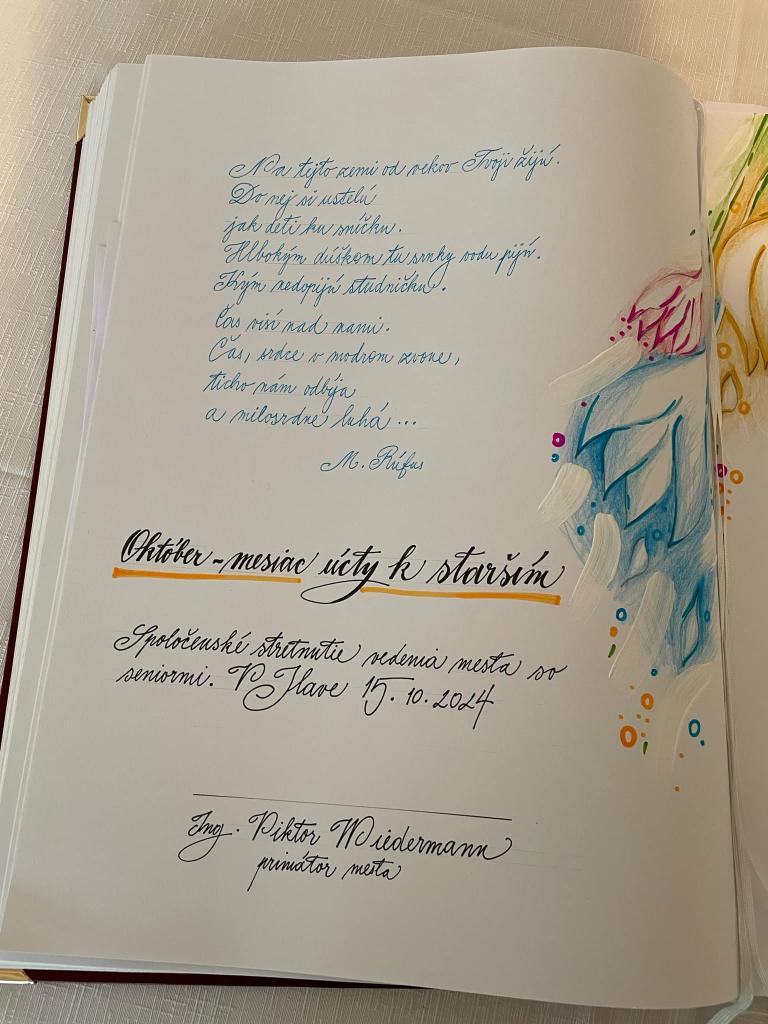 Na tejto zemi od vekov Tvoji žijú.
Do nej si ustelú
jak deti ku sníčku.
Hlbokým dúškom tu srnky vodu pijú.
Kým nedopijú studničku.
Čas visí nad nami.
Čas, srdce v modrom zvone,
ticho nám odbíja
a milosrdne luhá ...
M. Rúfus
Október - mesiac úcty k starším
Spoločenské stretnutie vedenia mesta so
seniormi. V Ilave 15. 10. 2024
Ing. Viktor Wiedermann
primátor mesta